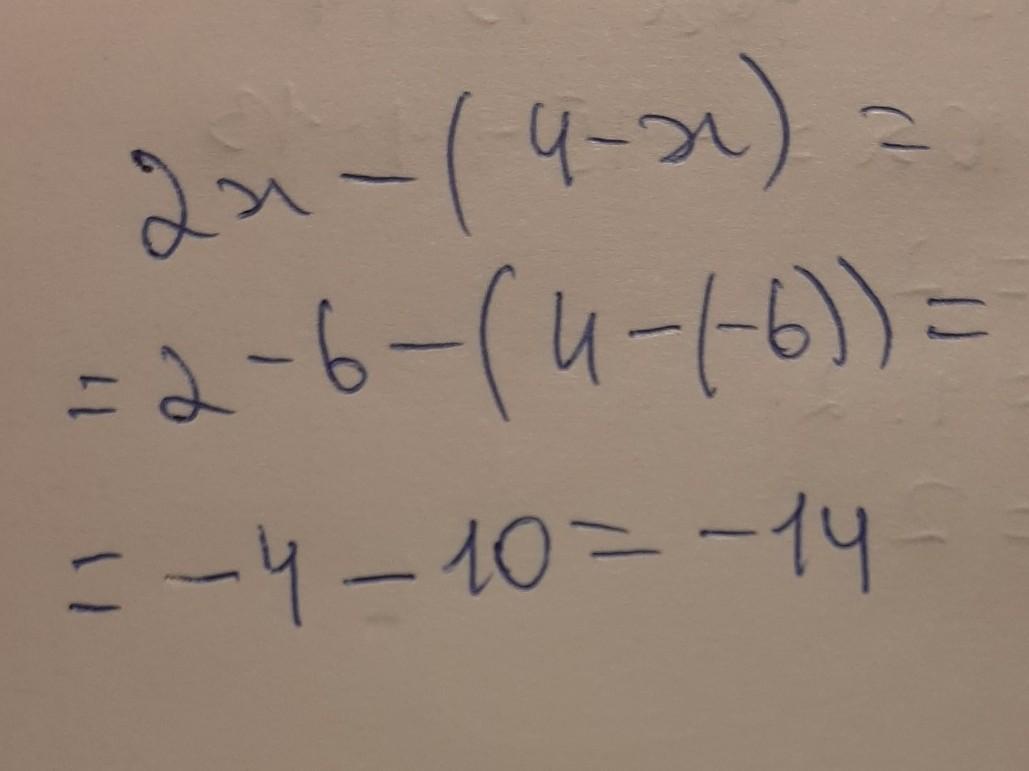 2x - (4 - x) =
= 2 - 6 - (4 - (-6)) =
= -4 - 10 = -14